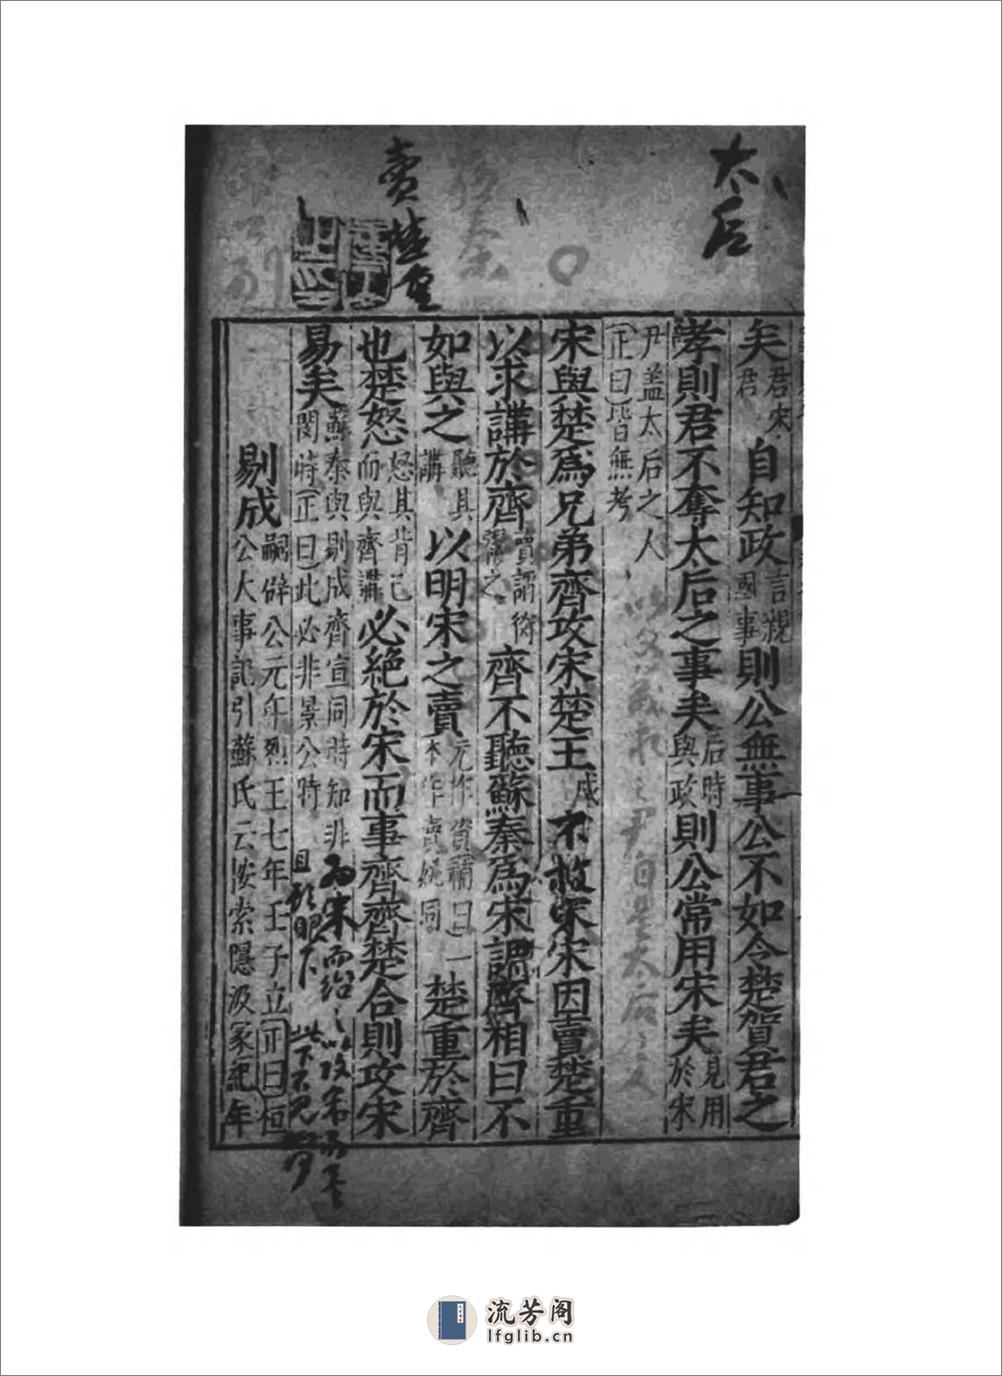 太后
賣楚重
矣君宋君自知政言親國事則公無事公不如令楚賀君之
孝則君不奪太后之事矣后時與政則公常用宋矣見用於宋
尹蓋太后之人
〔正曰〕皆無考
宋與楚爲兄弟齊攻宋楚王威不救宋宋因賣楚重
以求講於齊齊不聽蘇秦爲宋謂齊相曰不
如與之聽其講以明宋之賣元作資補曰一本作賣姚同楚重於齊
也楚怒怒其背己而與齊講必絶於宋而事齊齊楚合則攻宋
易矣蘇秦與剔成齊宣同時知非閔時〔正曰〕此必非景公時
剔成嗣辟公元年烈王七年壬子立〔正曰〕桓公大事記引蘇氏云按索隱汲冢紀年
流芳阁
lfglib.cn